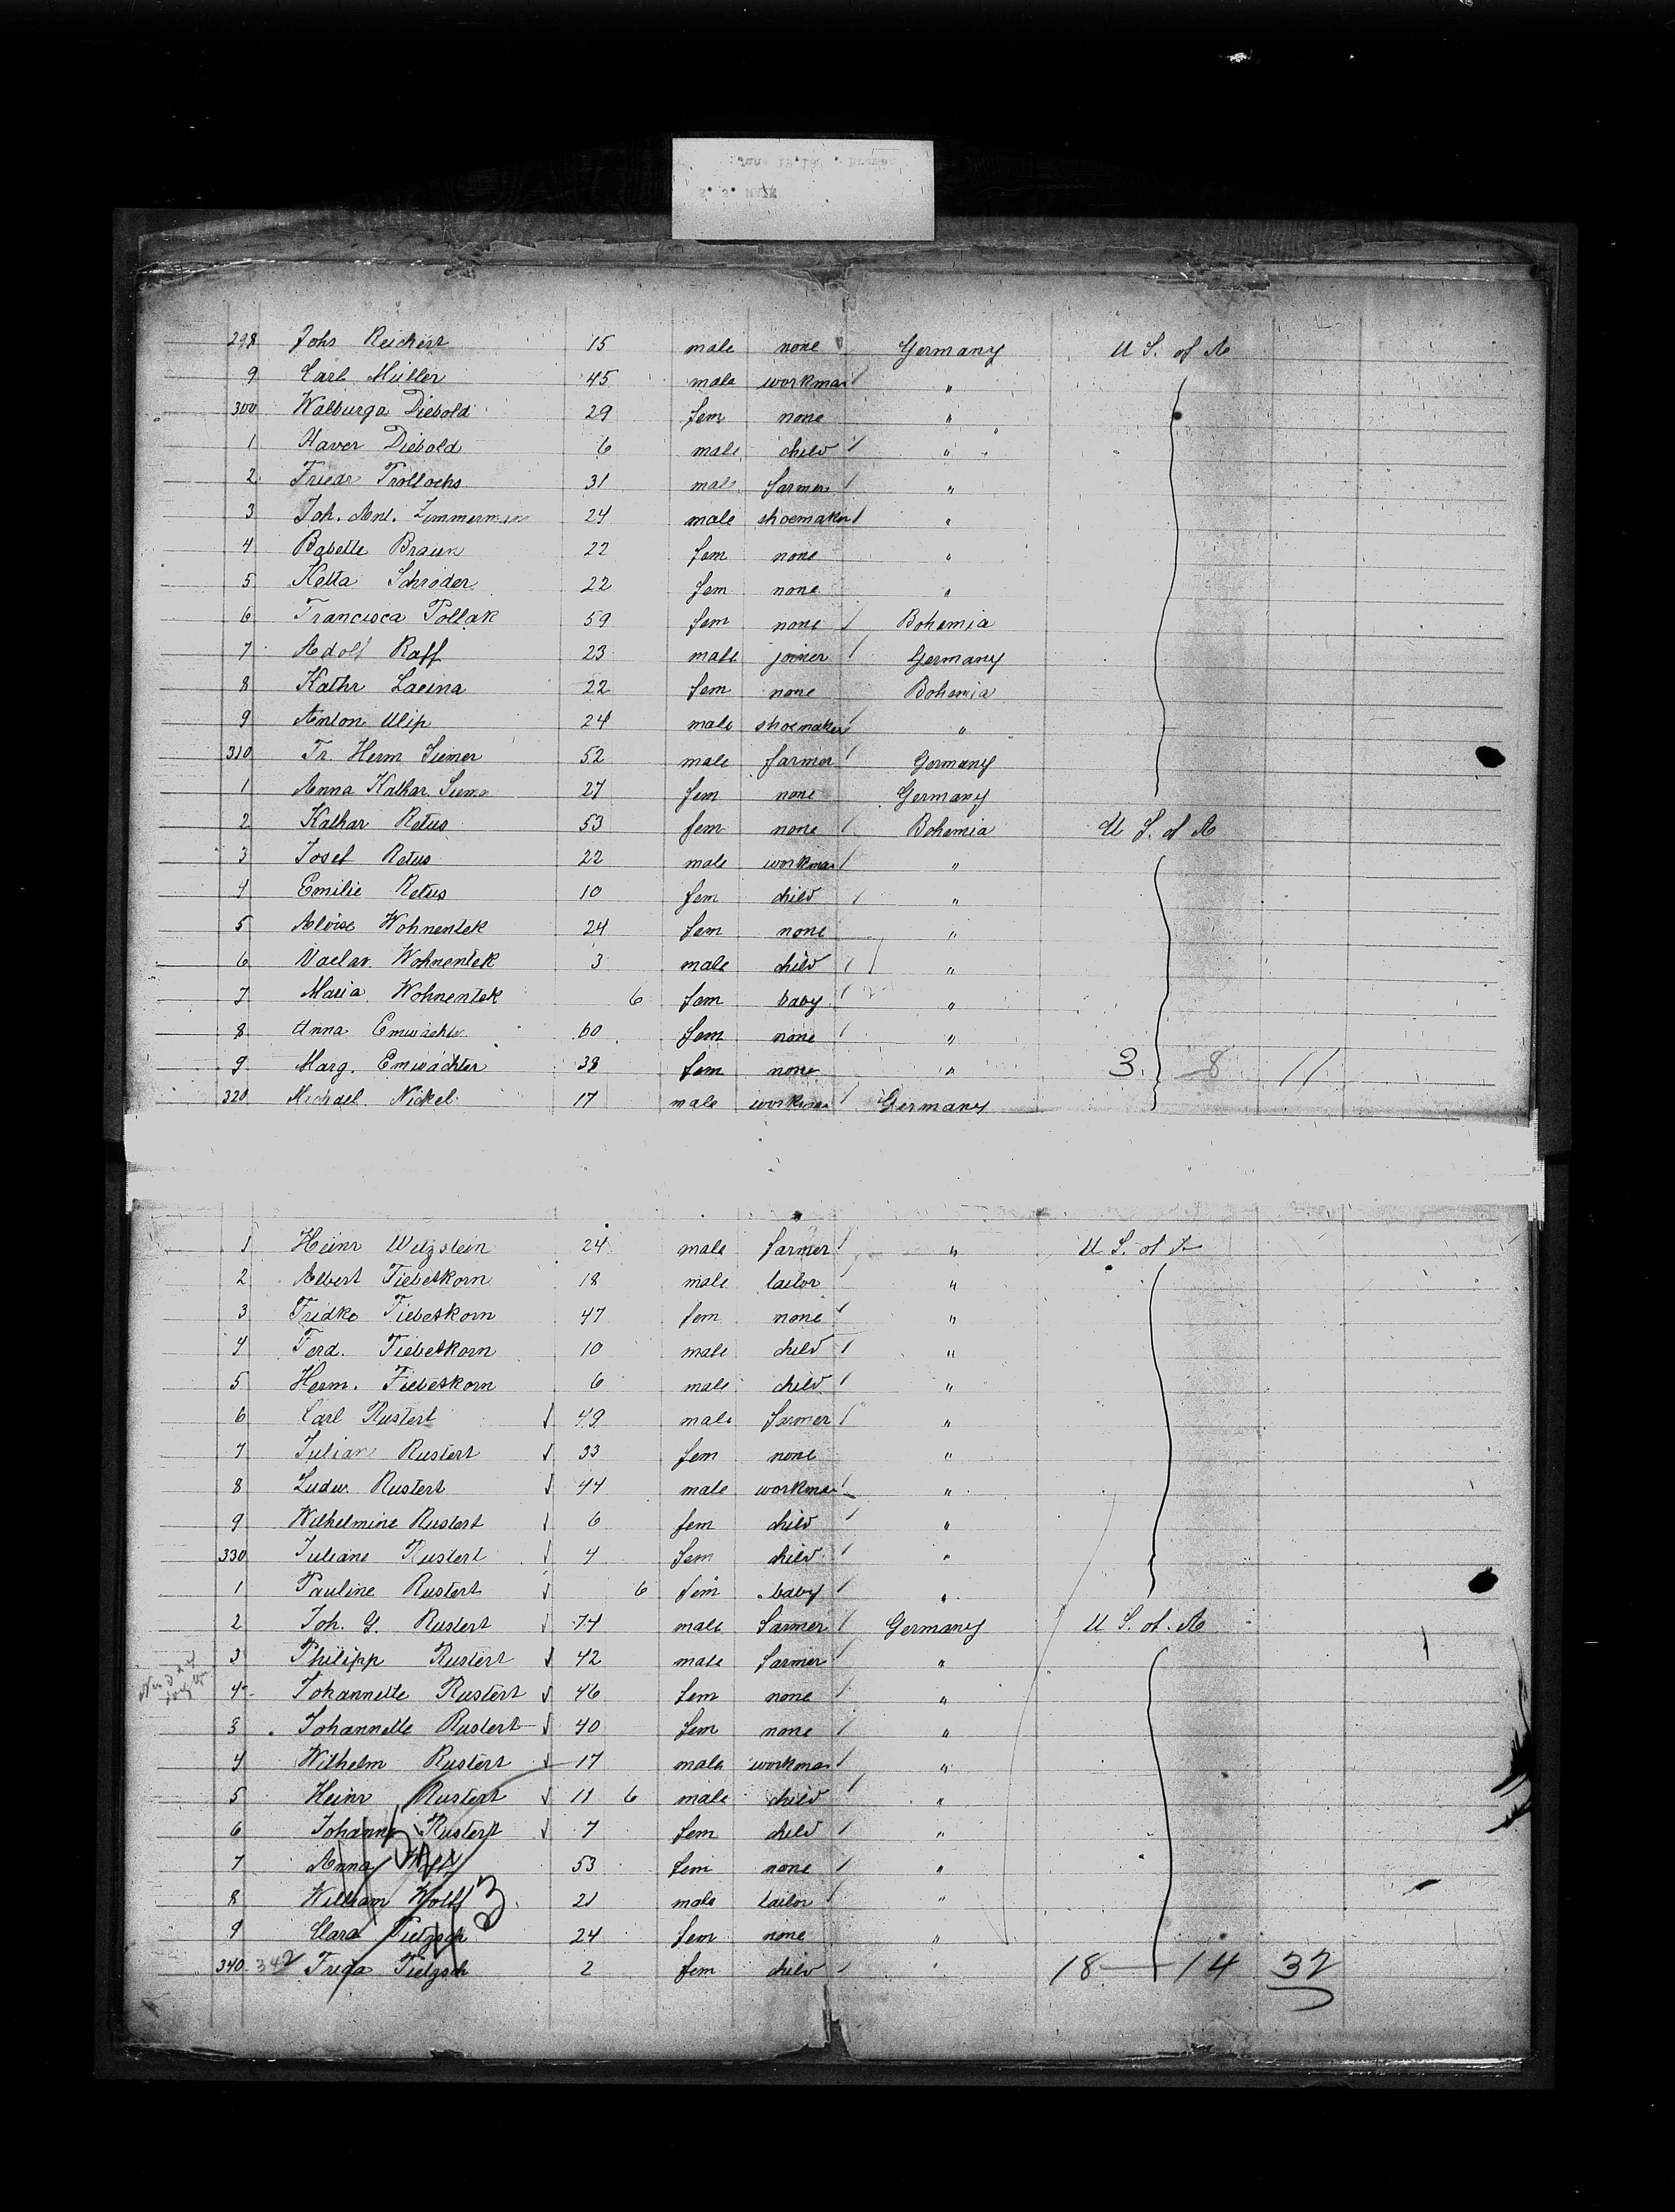 298 Johs Reichert 15 male none Germany U S. of A
9 Carl Müller 45 male workman "
300 Walburga Diebold 29 fem none "
1 Xaver Diebold 6 male child "
2 Friedr Trollochs 31 male farmer "
3 Joh. Ant. Zimmerman 24 male shoemaker "
4 Babette Braun 22 fem none "
5 Ketta Schröder 22 fem none "
6 Francisca Pollak 59 fem none Bohemia
7 Adolf Raff 23 male joiner Germany
8 Kathr Lacina 22 fem none Bohemia
9 Anton Ulip 24 male shoemaker "
310 Fr Herm Siemer 52 male farmer Germany
1 Anna Kathar. 27 fem none Germany
2 Kathar Retus 53 fem none Bohemia U S. of A
3 Josef Retus 22 male workman "
4 Emilie Retus 10 fem child "
5 Aloise Wohnentek 24 fem none "
6 Vaclav Wohnentek 3 male child "
7 Maria Wohnentek 6 fem baby "
8 Anna 60 fem none "
9 Marg. Emwächter 38 fem none " 3 8 11
320 Michael Nickel 17 male workman Germany
1 Heinr Witzstein 24 male farmer " U S. of A
2 Albert Fiebetkorn 18 male tailor "
3 Fridke Fiebetkorn 47 fem none "
4 Ferd. Fiebetkorn 10 male child "
5 Herm. Fiebetkorn 6 male child "
6 Carl Rustert 49 male farmer "
7 Juliane Rustert 33 fem none "
8 Ludw. Rustert 44 male workman "
9 Wilhelmine Rustert 6 fem child "
330 Juliane Rustert 4 fem child "
1 Pauline Rustert 6 fem baby "
2 Joh. G. Rustert 74 male farmer Germany U S. of A
3 Philipp Rustert 42 male farmer "
4 Johannette Rustert 46 fem none "
3 Johannette Rustert 40 fem none "
4 Wilhelm Rustert 17 male workman "
5 Heinr Rustert 11 6 male child "
6 Johanna Rustert 7 fem child "
7 Anna 53 fem none "
8 William Wolff 21 male tailor "
9 Clara Tietzsch 24 fem none "
340 342 Frida Tietzsch 2 fem child " 18 14 32